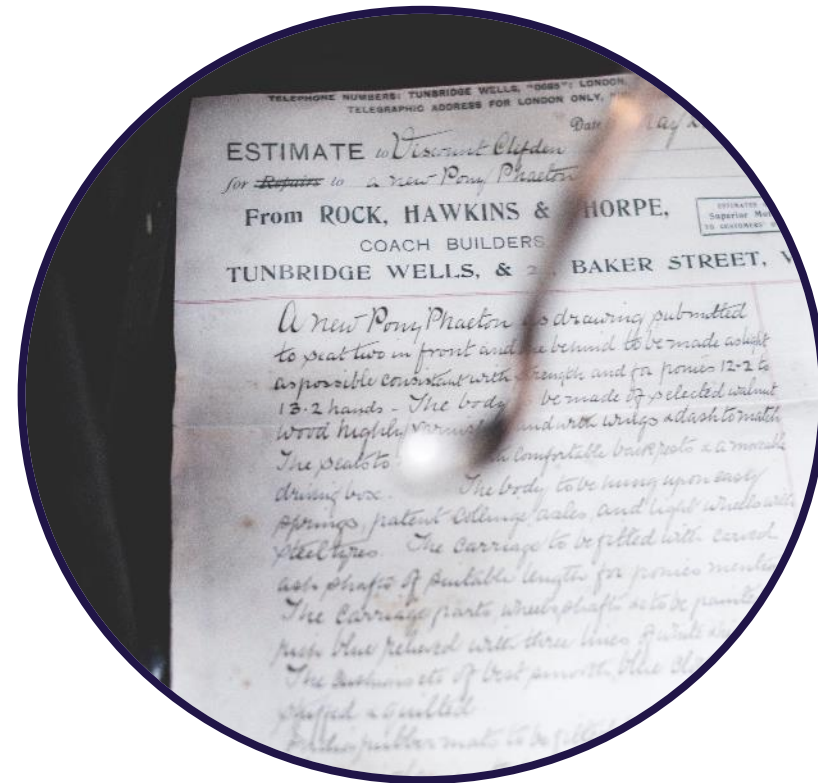 TELEPHONE NUMBERS: TUNBRIDGE WELLS, "0085"; LONDON,
TELEGRAPHIC ADDRESS FOR LONDON ONLY, "
Date May
ESTIMATE to Viscount Clifden
for Repairs to a new Pony Phaeton
From ROCK, HAWKINS & HORPE,
Superior
COACH BUILDERS
TUNBRIDGE WELLS, & 2 , BAKER STREET, W
A new Pony Phaeton as drawing submitted
to seat two in front and one behind to be made as light
as possible consistant with strength and for ponies 12-2 to
13-2 hands - The body be made of selected walnut
wood highly varnished and with wings & dash to match
The seats to comfortable back rests & a movable
driving box. The body to be hung upon easy
springs, patent Collinge axles, and light wheels with
steel tyres. The carriage to be fitted with carved
ash shafts of suitable length for ponies mention
The carriage parts, wheels, shafts &c to be painted
rich blue relieved with three lines of white
The cushions etc of best smooth blue cloth
stuffed & quilted
rubber mats to be fitted